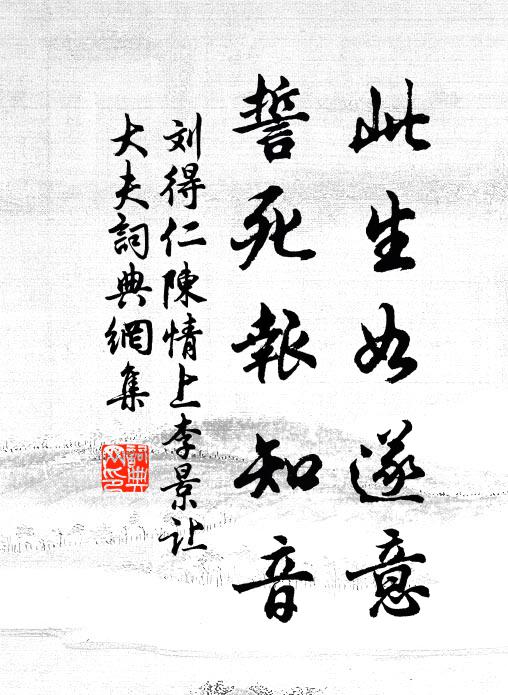 此生如遂意
誓死報知音
刘得仁陳情上李景让
大夫詞典網集
詞典网印